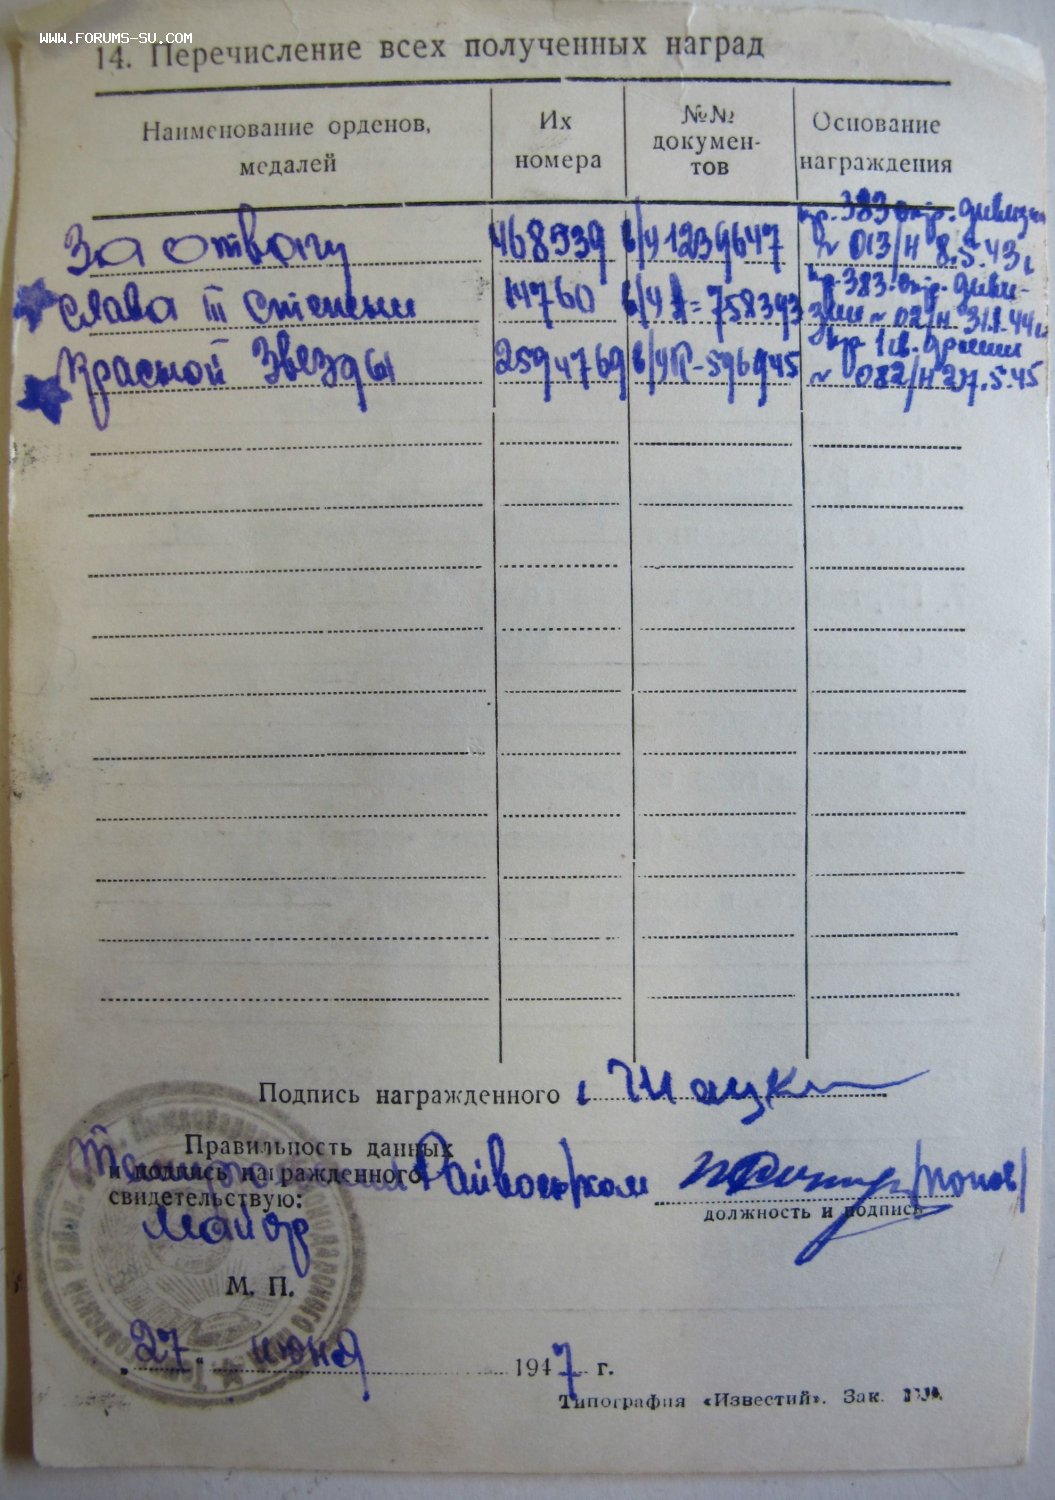 WWW.FORUMS-SU.COM
14. Перечисление всех полученных наград
Наименование орденов, медалей
Их номера
№№ докумен-тов
Основание награждения
За отвагу 468939 в/у 1239647 пр. 383 стр. дивизии
№ 013/н 8.5.43г
Слава III степени 14760 в/у А=758393 пр. 383 стр. диви-
зии № 021/н 31.1.44г
Красной Звезды 2594769 в/у 596945 пр. 1 гв. армии
№ 082/н 27.5.45
Подпись награжденного
Правильность данных
и подпись награжденного Райвоенком /Попов/
свидетельствую:
должность и подпись
Майор
М. П.
„27“ июня 1947 г.
Типография «Известий». Зак.